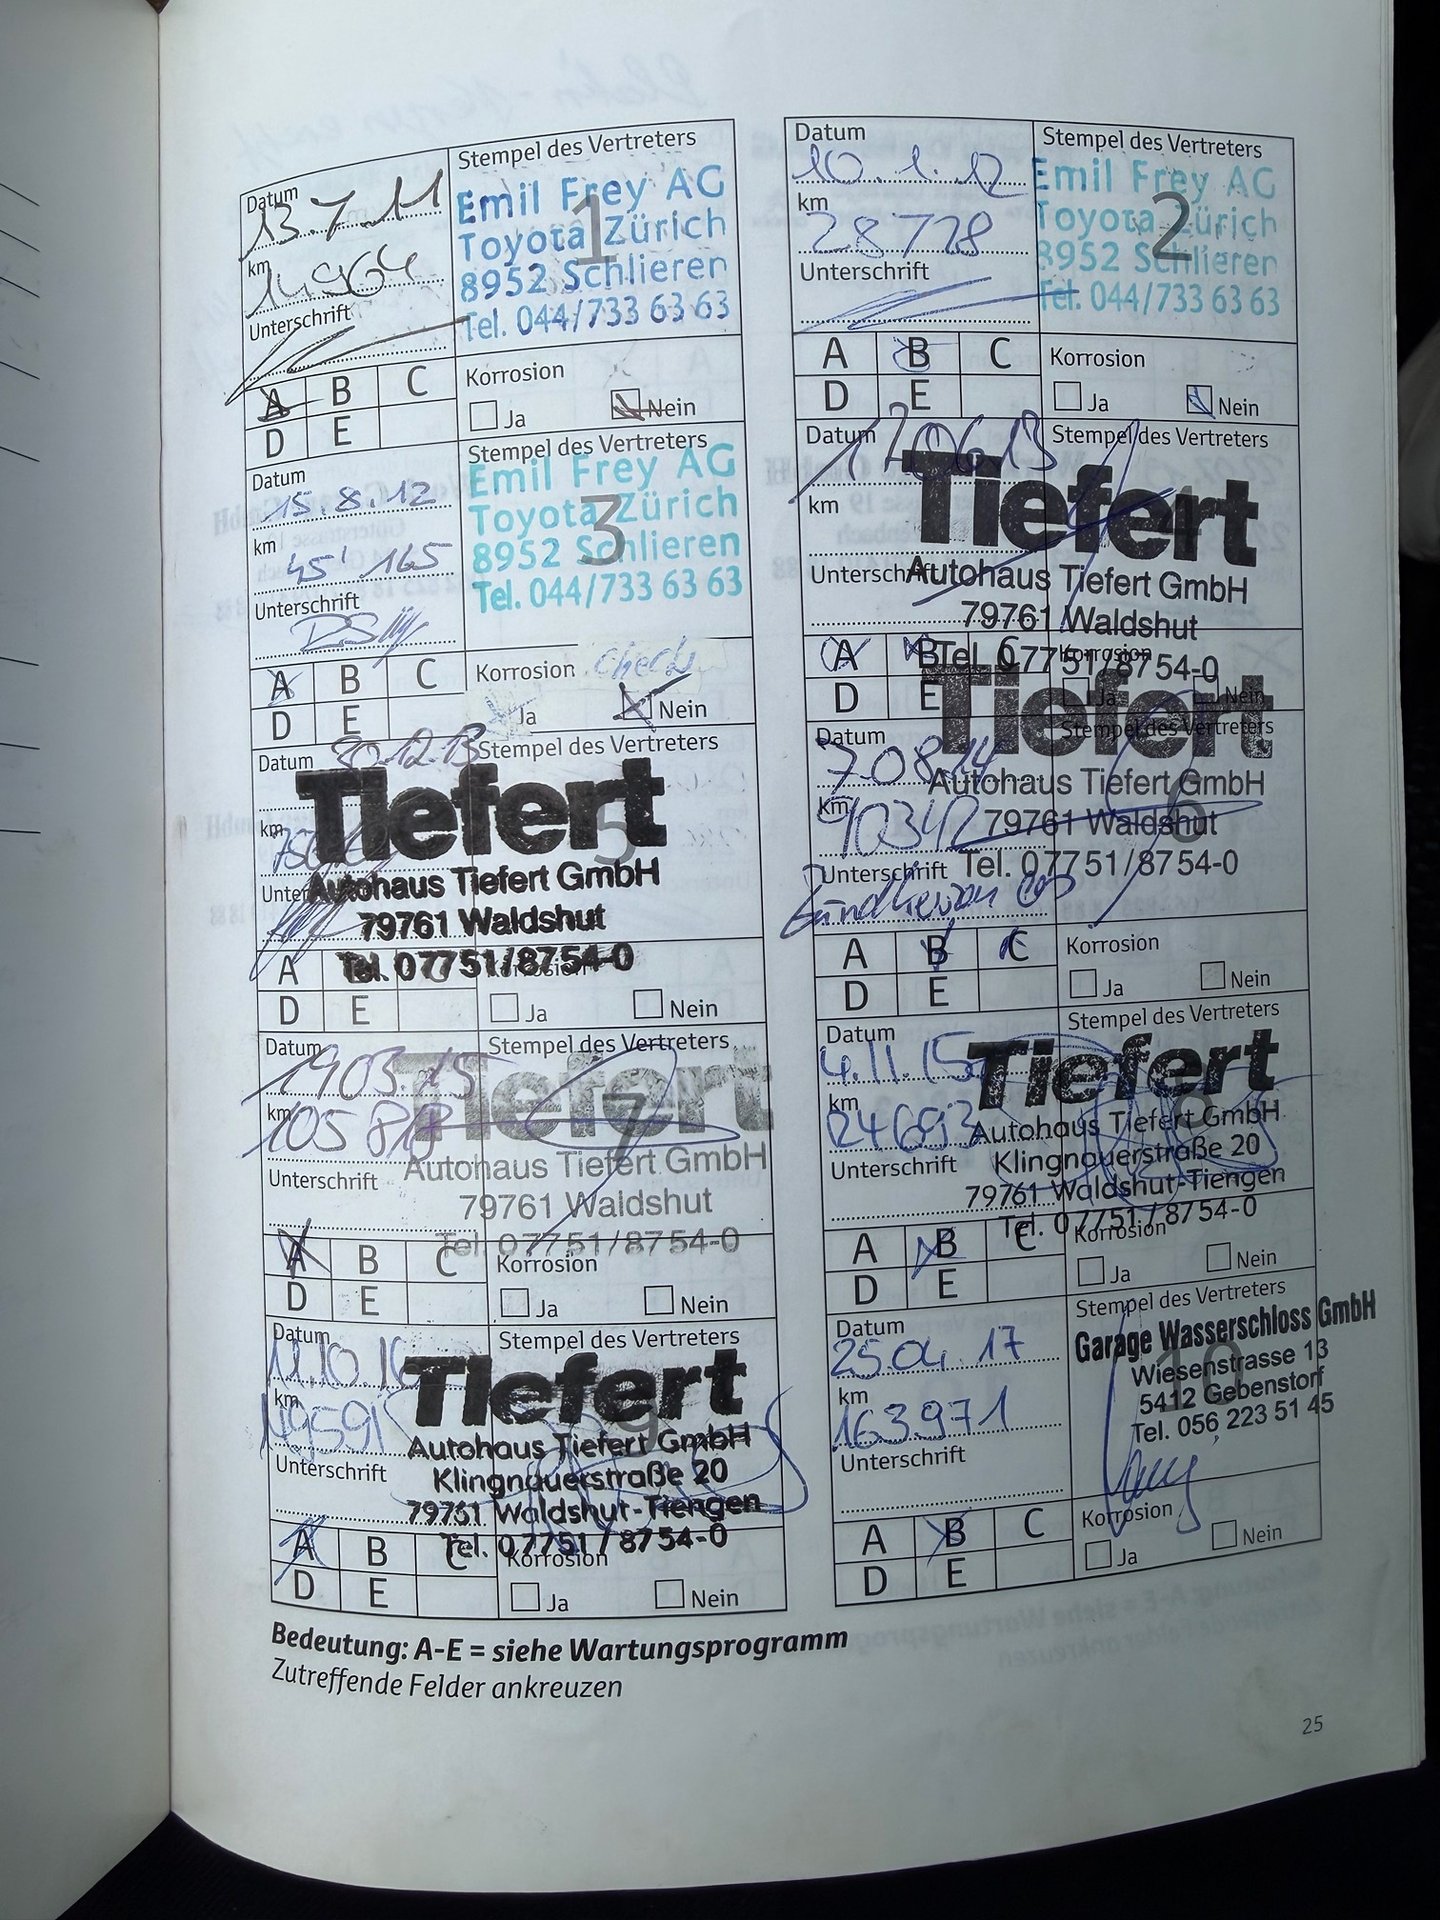 Datum
13.7.11
km
14964
Unterschrift
Stempel des Vertreters
1
Emil Frey AG
Toyota Zürich
8952 Schlieren
Tel. 044/733 63 63
A B C
D E
Korrosion
Ja Nein
Datum
10.1.12
km
28728
Unterschrift
Stempel des Vertreters
2
Emil Frey AG
Toyota Zürich
8952 Schlieren
Tel. 044/733 63 63
A B C
D E
Korrosion
Ja Nein
Datum
15.8.12
km
45' 165
Unterschrift
Stempel des Vertreters
3
Emil Frey AG
Toyota Zürich
8952 Schlieren
Tel. 044/733 63 63
A B C
D E
Korrosion check
Ja Nein
Datum
120613
km
Unterschrift
Stempel des Vertreters
4
Tiefert
Autohaus Tiefert GmbH
79761 Waldshut
Tel. 07751/8754-0
A B C
D E
Korrosion
Ja Nein
Datum
30.12.13
km
Unter
Stempel des Vertreters
5
Tiefert
Autohaus Tiefert GmbH
79761 Waldshut
Tel. 07751/8754-0
A
D E
Korrosion
Ja Nein
Datum
70814
km
90342
Unterschrift
Stempel des Vertreters
6
Tiefert
Autohaus Tiefert GmbH
79761 Waldshut
Tel. 07751/8754-0
A B C
D E
Korrosion
Ja Nein
Datum
1903.15
km
Unterschrift
Stempel des Vertreters
7
Tiefert
Autohaus Tiefert GmbH
79761 Waldshut
Tel. 07751/8754-0
A B C
D E
Korrosion
Ja Nein
Datum
4.11.15
km
124693
Unterschrift
Stempel des Vertreters
8
Tiefert
Autohaus Tiefert GmbH
Klingnauerstraße 20
79761 Waldshut-Tiengen
Tel. 07751/8754-0
A B C
D E
Korrosion
Ja Nein
Datum
11.10.16
km
149591
Unterschrift
Stempel des Vertreters
9
Tiefert
Autohaus Tiefert GmbH
Klingnauerstraße 20
79761 Waldshut-Tiengen
Tel. 07751/8754-0
A B C
D E
Korrosion
Ja Nein
Datum
25.04.17
km
163971
Unterschrift
Stempel des Vertreters
10
Garage Wasserschloss GmbH
Wiesenstrasse 13
5412 Gebenstorf
Tel. 056 223 51 45
A B C
D E
Korrosion
Ja Nein
Bedeutung: A-E = siehe Wartungsprogramm
Zutreffende Felder ankreuzen
25